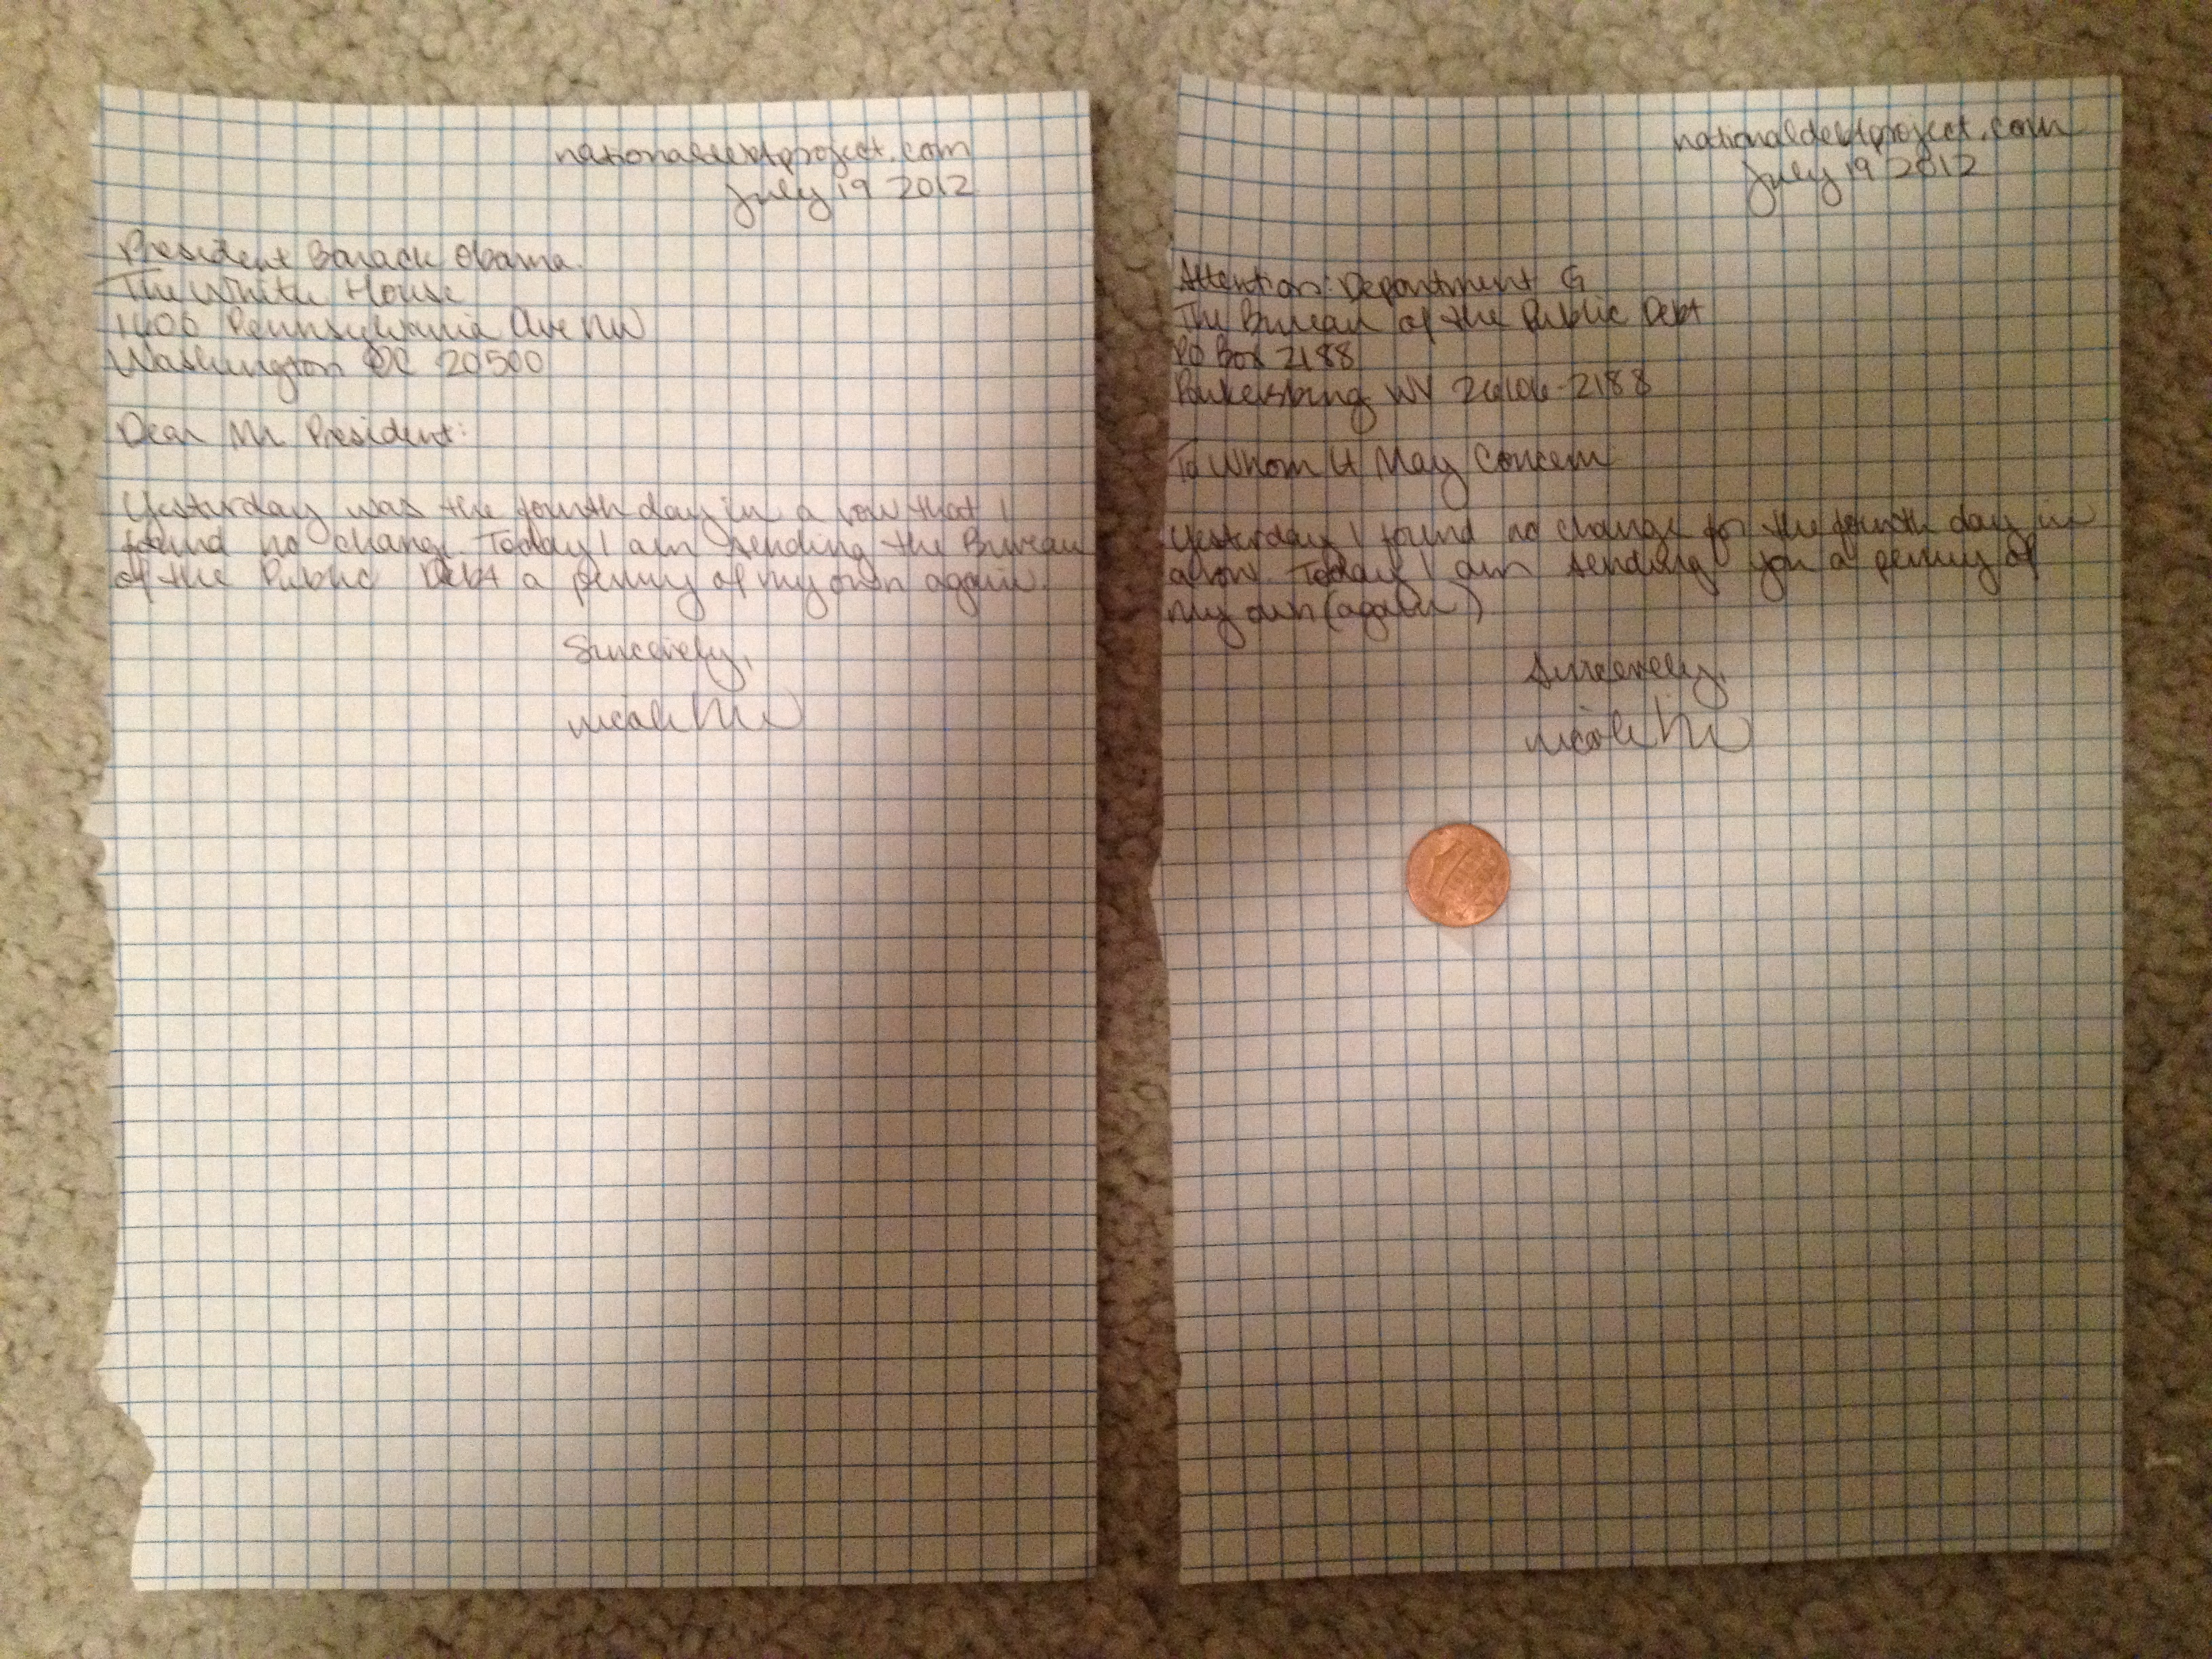 nationaldebtproject.com
July 19 2012
President Barack Obama
The White House
1600 Pennsylvania Ave NW
Washington DC 20500
Dear Mr President:
Yesterday was the fourth day in a row that I
found no change. Today I am sending the Bureau
of the Public Debt a penny of my own again.
Sincerely,
nicole
nationaldebtproject.com
July 19 2012
Attention: Department G
The Bureau of the Public Debt
PO Box 2188
Parkersburg WV 26106-2188
To Whom It May Concern
Yesterday I found no change for the fourth day in
a row. Today I am sending you a penny of
my own (again)
Sincerely,
nicole